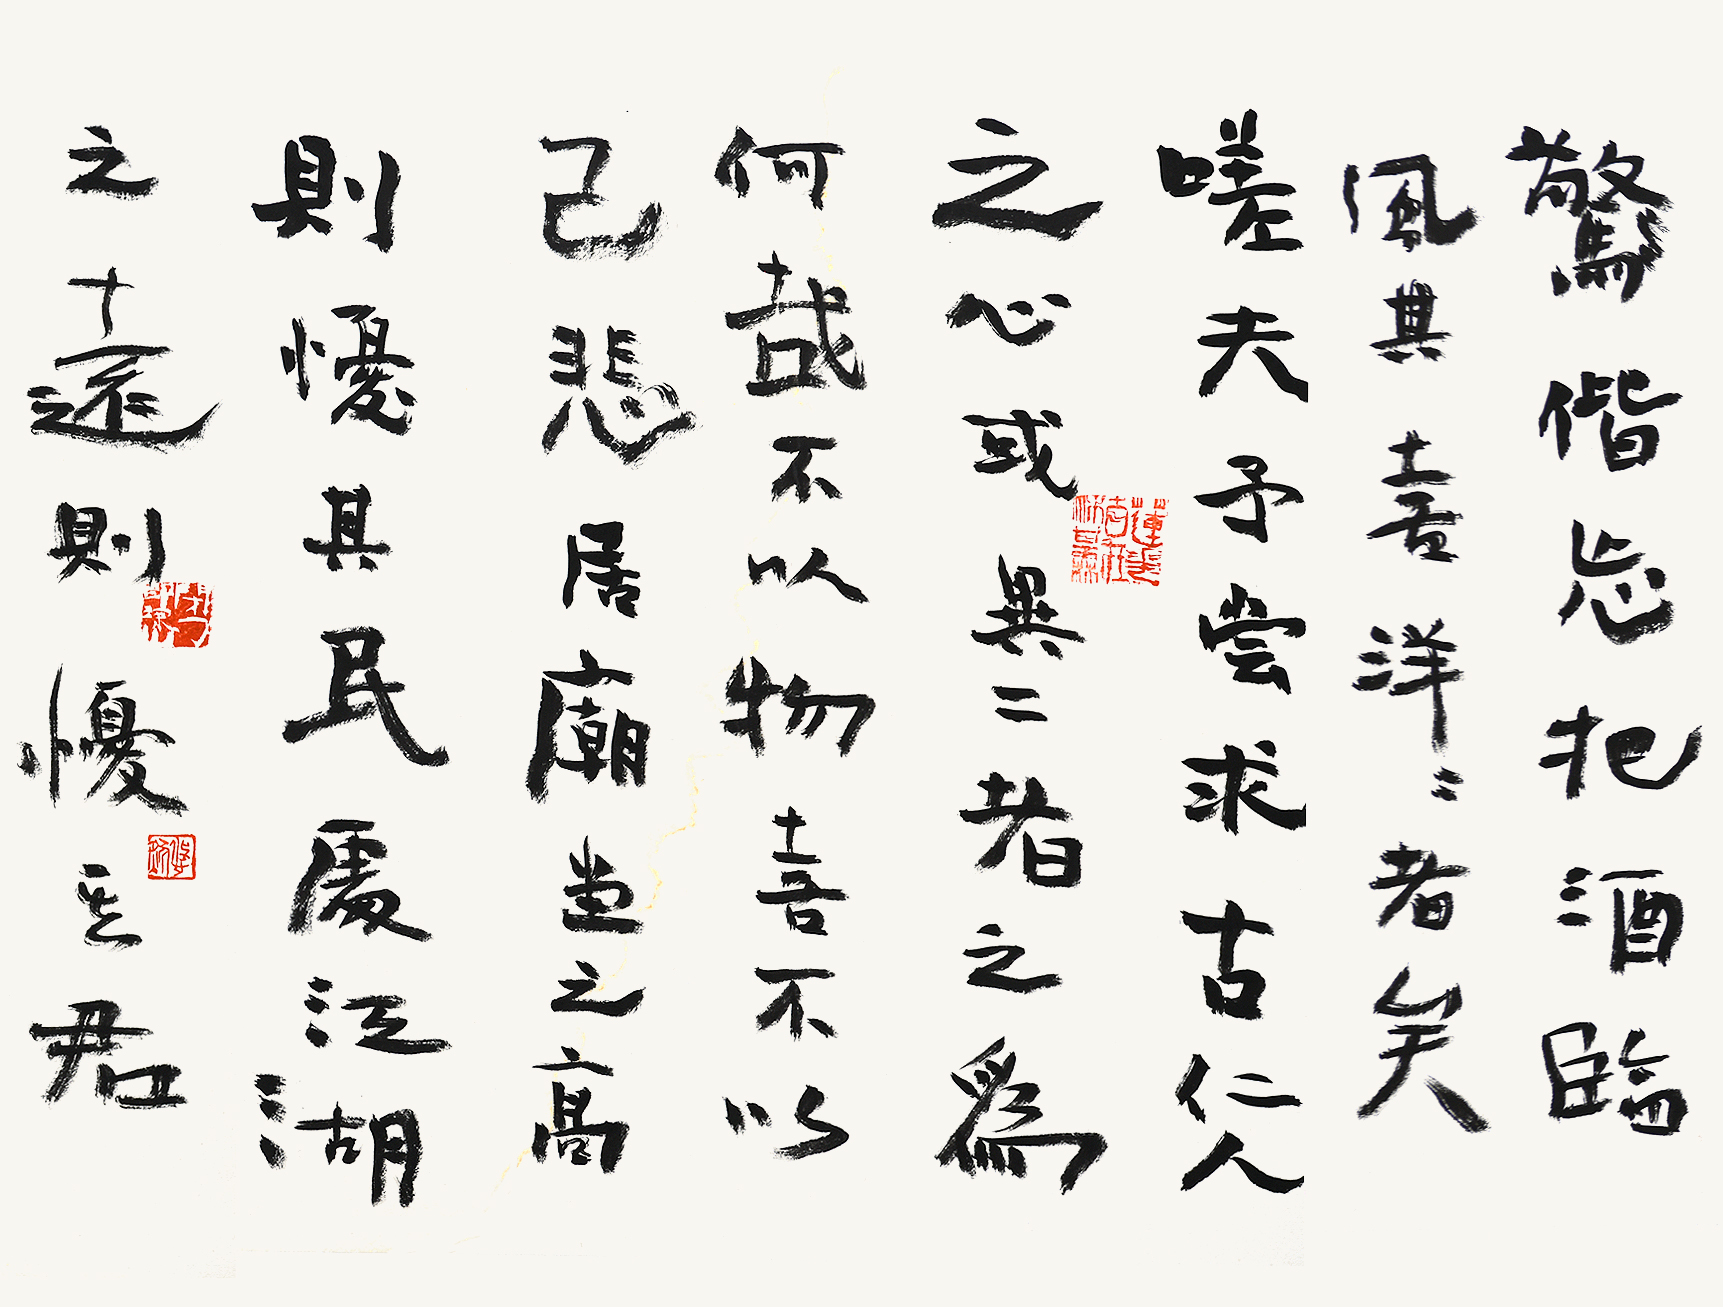 驚偕忘把酒臨
風其喜洋〻者矣
嗟夫予尝求古仁人
之心或異二者之爲
何哉不以物喜不以
己悲居廟堂之高
則憂其民處江湖
之遠則憂其君